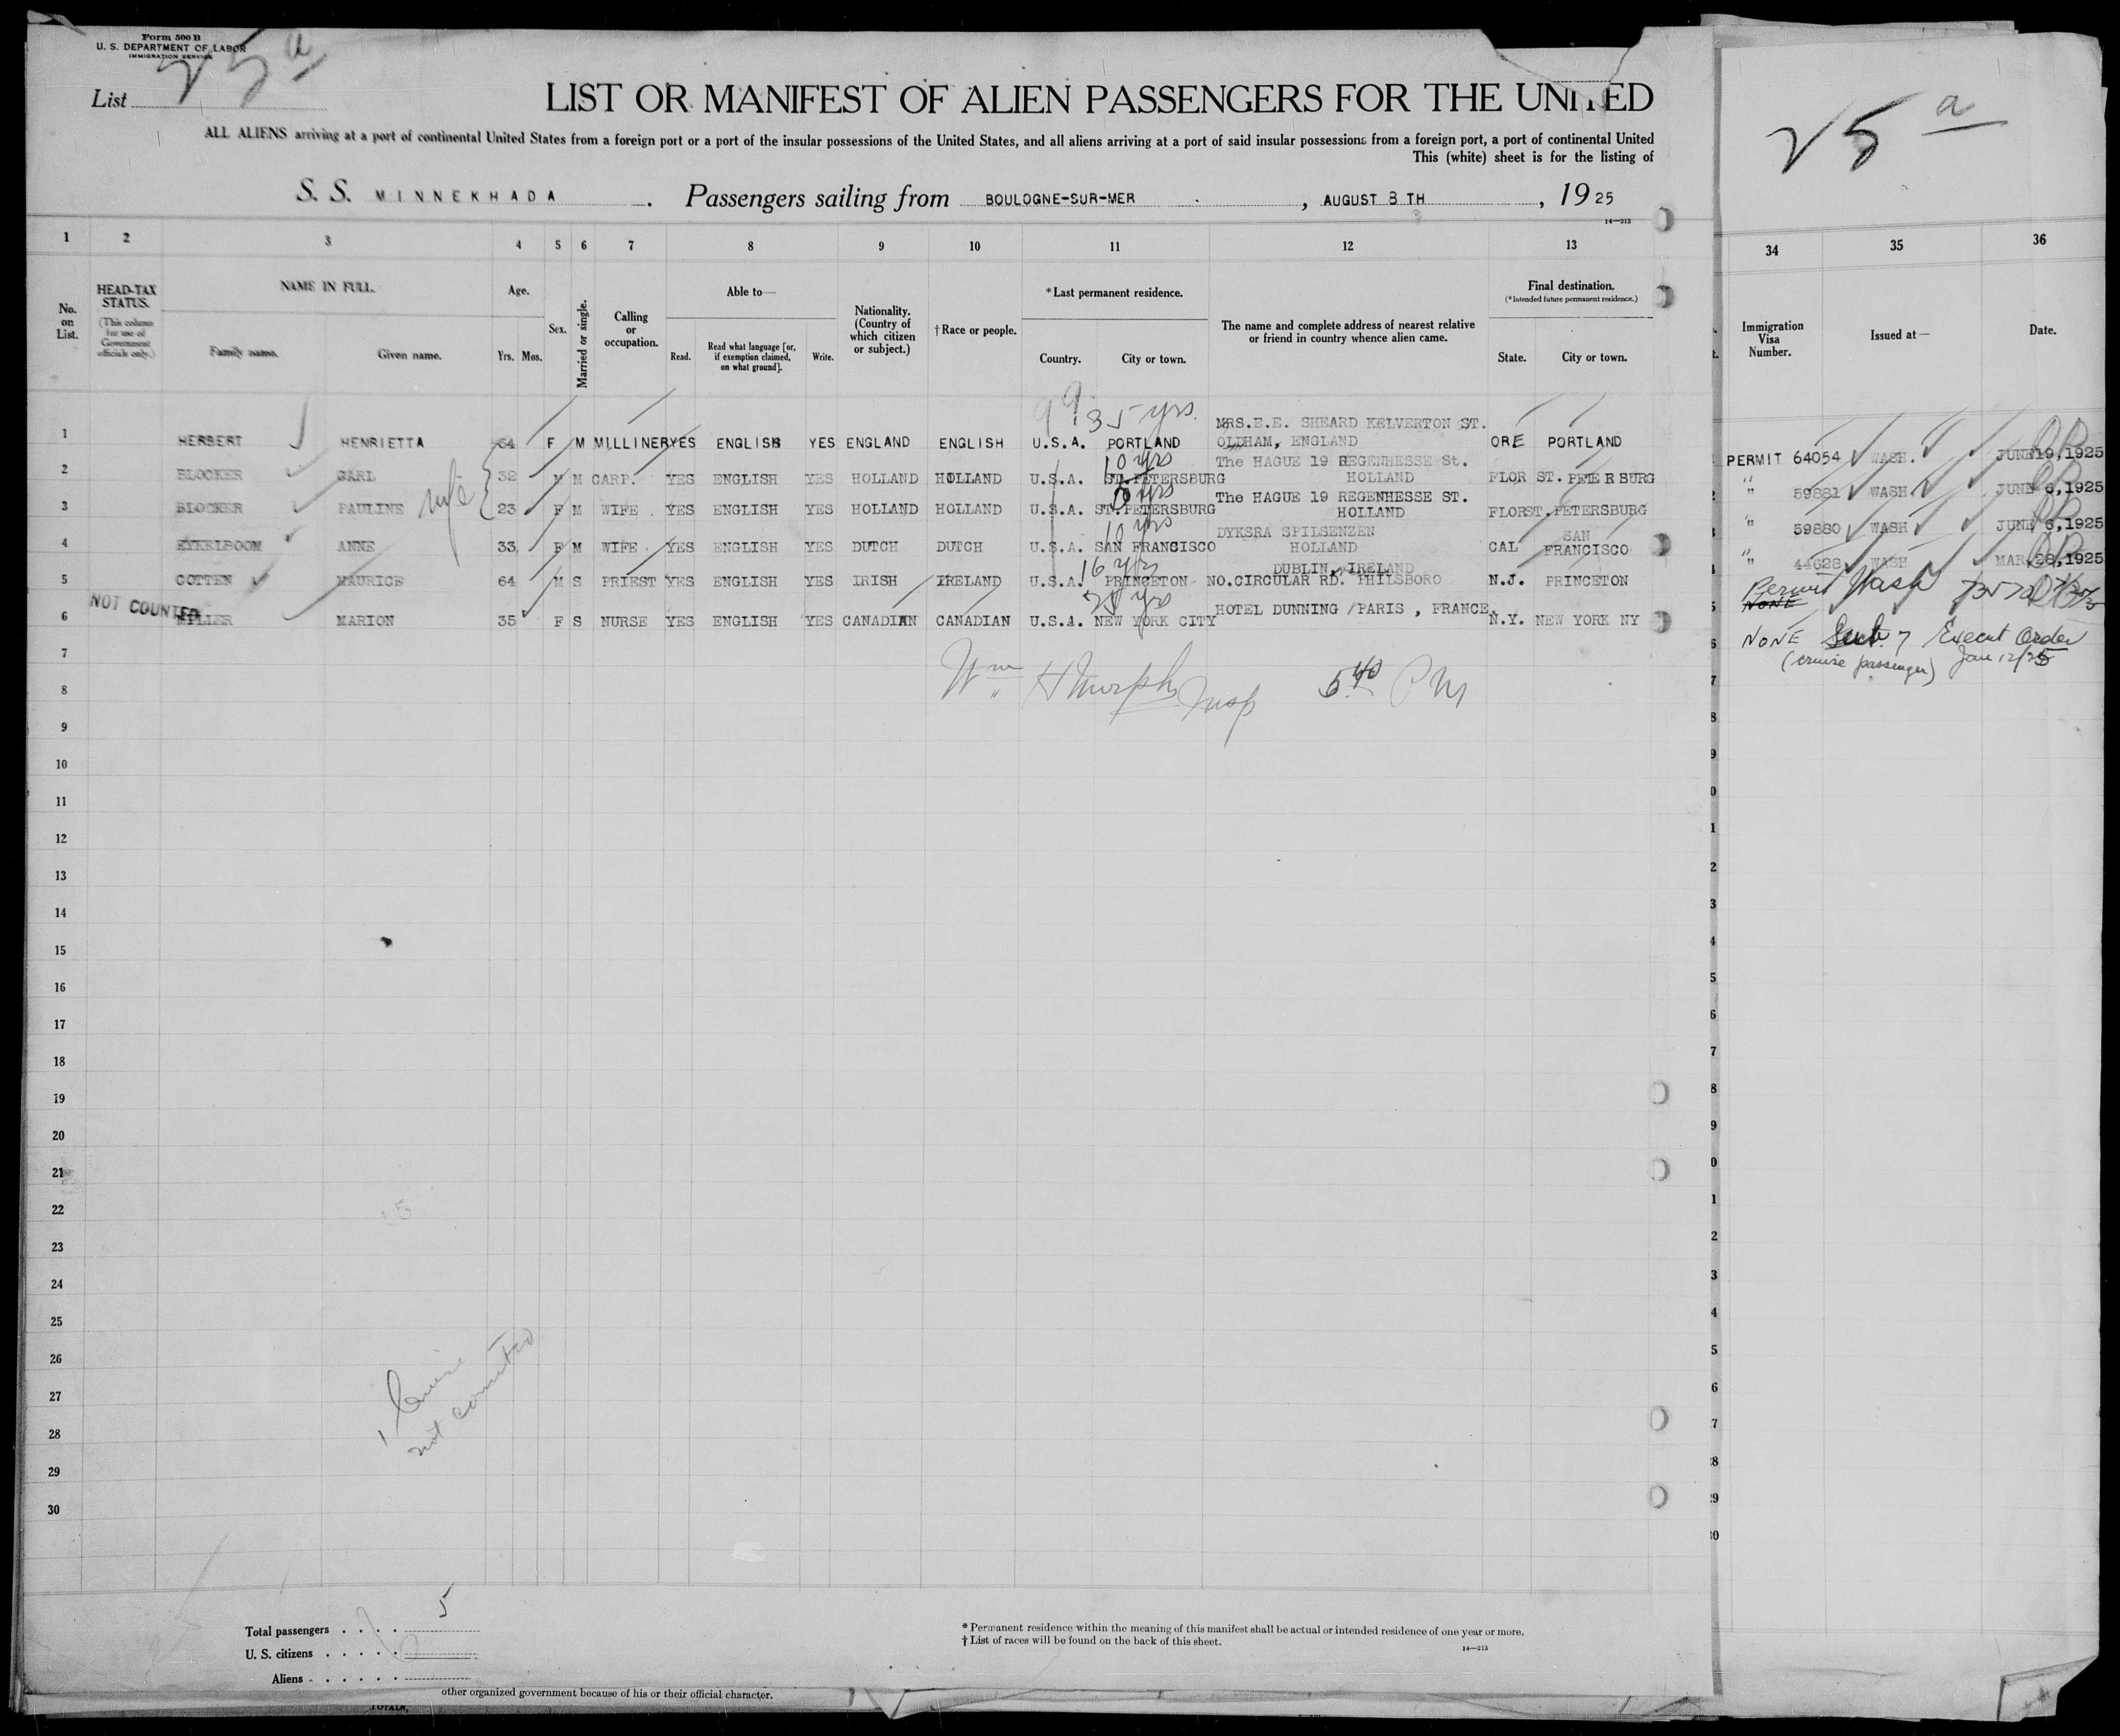 Form 500 B
U. S. DEPARTMENT OF LABOR
IMMIGRATION SERVICE
25 a
List
LIST OR MANIFEST OF ALIEN PASSENGERS FOR THE UNITED
ALL ALIENS arriving at a port of continental United States from a foreign port or a port of the insular possessions of the United States, and all aliens arriving at a port of said insular possessions from a foreign port, a port of continental United
This (white) sheet is for the listing of
S. S. MINNEKHADA. Passengers sailing from BOULOGNE-SUR-MER, AUGUST 8 TH, 1925
14—213
1 2 3 4 5 6 7 8 9 10 11 12 13
No. on List.
HEAD-TAX STATUS.
(This column for use of Government officials only.)
NAME IN FULL.
Family name. Given name.
Age.
Yrs. Mos.
Sex.
Married or single.
Calling or occupation.
Able to—
Read. Read what language [or, if exemption claimed, on what ground]. Write.
Nationality. (Country of which citizen or subject.)
†Race or people.
*Last permanent residence.
Country. City or town.
The name and complete address of nearest relative or friend in country whence alien came.
Final destination.
(*Intended future permanent residence.)
State. City or town.
35 yrs.
MRS.E.E. SHEARD KELVERTON ST.
1 HERBERT HENRIETTA 64 F M MILLINER YES ENGLISH YES ENGLAND ENGLISH U.S.A. PORTLAND OLDHAM, ENGLAND ORE PORTLAND
10 yrs
The HAGUE 19 REGENHESSE St.
2 BLOCKER CARL 32 M M CARP. YES ENGLISH YES HOLLAND HOLLAND U.S.A. ST.PETERSBURG HOLLAND FLOR ST.PETERSBURG
yrs
The HAGUE 19 REGENHESSE ST.
wife
3 BLOCKER PAULINE 23 F M WIFE YES ENGLISH YES HOLLAND HOLLAND U.S.A. ST.PETERSBURG HOLLAND FLOR ST.PETERSBURG
10 yrs
DYKSRA SPILSENZEN
SAN
4 EYKELBOOM ANNE 33 F M WIFE YES ENGLISH YES DUTCH DUTCH U.S.A. SAN FRANCISCO HOLLAND CAL FRANCISCO
16 yrs
DUBLIN, IRELAND
5 COTTEN MAURICE 64 M S PRIEST YES ENGLISH YES IRISH IRELAND U.S.A. PRINCETON NO.CIRCULAR RD. PHILSBORO N.J. PRINCETON
NOT COUNTED
yrs
HOTEL DUNNING /PARIS , FRANCE.
6 MILLER MARION 35 F S NURSE YES ENGLISH YES CANADIAN CANADIAN U.S.A. NEW YORK CITY N.Y. NEW YORK NY
7
8
Wm H Murphy Insp 5 40 PM
9
10
11
12
13
14
15
16
17
18
19
20
21
22
23
24
25
26
27
28
29
30
1 Cruise
not counted
Total passengers . . . . 5
U. S. citizens . . . . .
Aliens . . . . . .
* Permanent residence within the meaning of this manifest shall be actual or intended residence of one year or more.
† List of races will be found on the back of this sheet.
14—213
other organized government because of his or their official character.
TOTALS,
25 a
34 35 36
Immigration Visa Number.
Issued at—
Date.
PERMIT 64054 WASH. JUNE 19,1925
" 59881 WASH JUNE 6,1925
" 59880 WASH JUNE 6,1925
" 44628 WASH MAR 28,1925
Permit Wash
NONE
NONE Sect. 7 Execut Order
(Cruise passenger) Jan 12/25